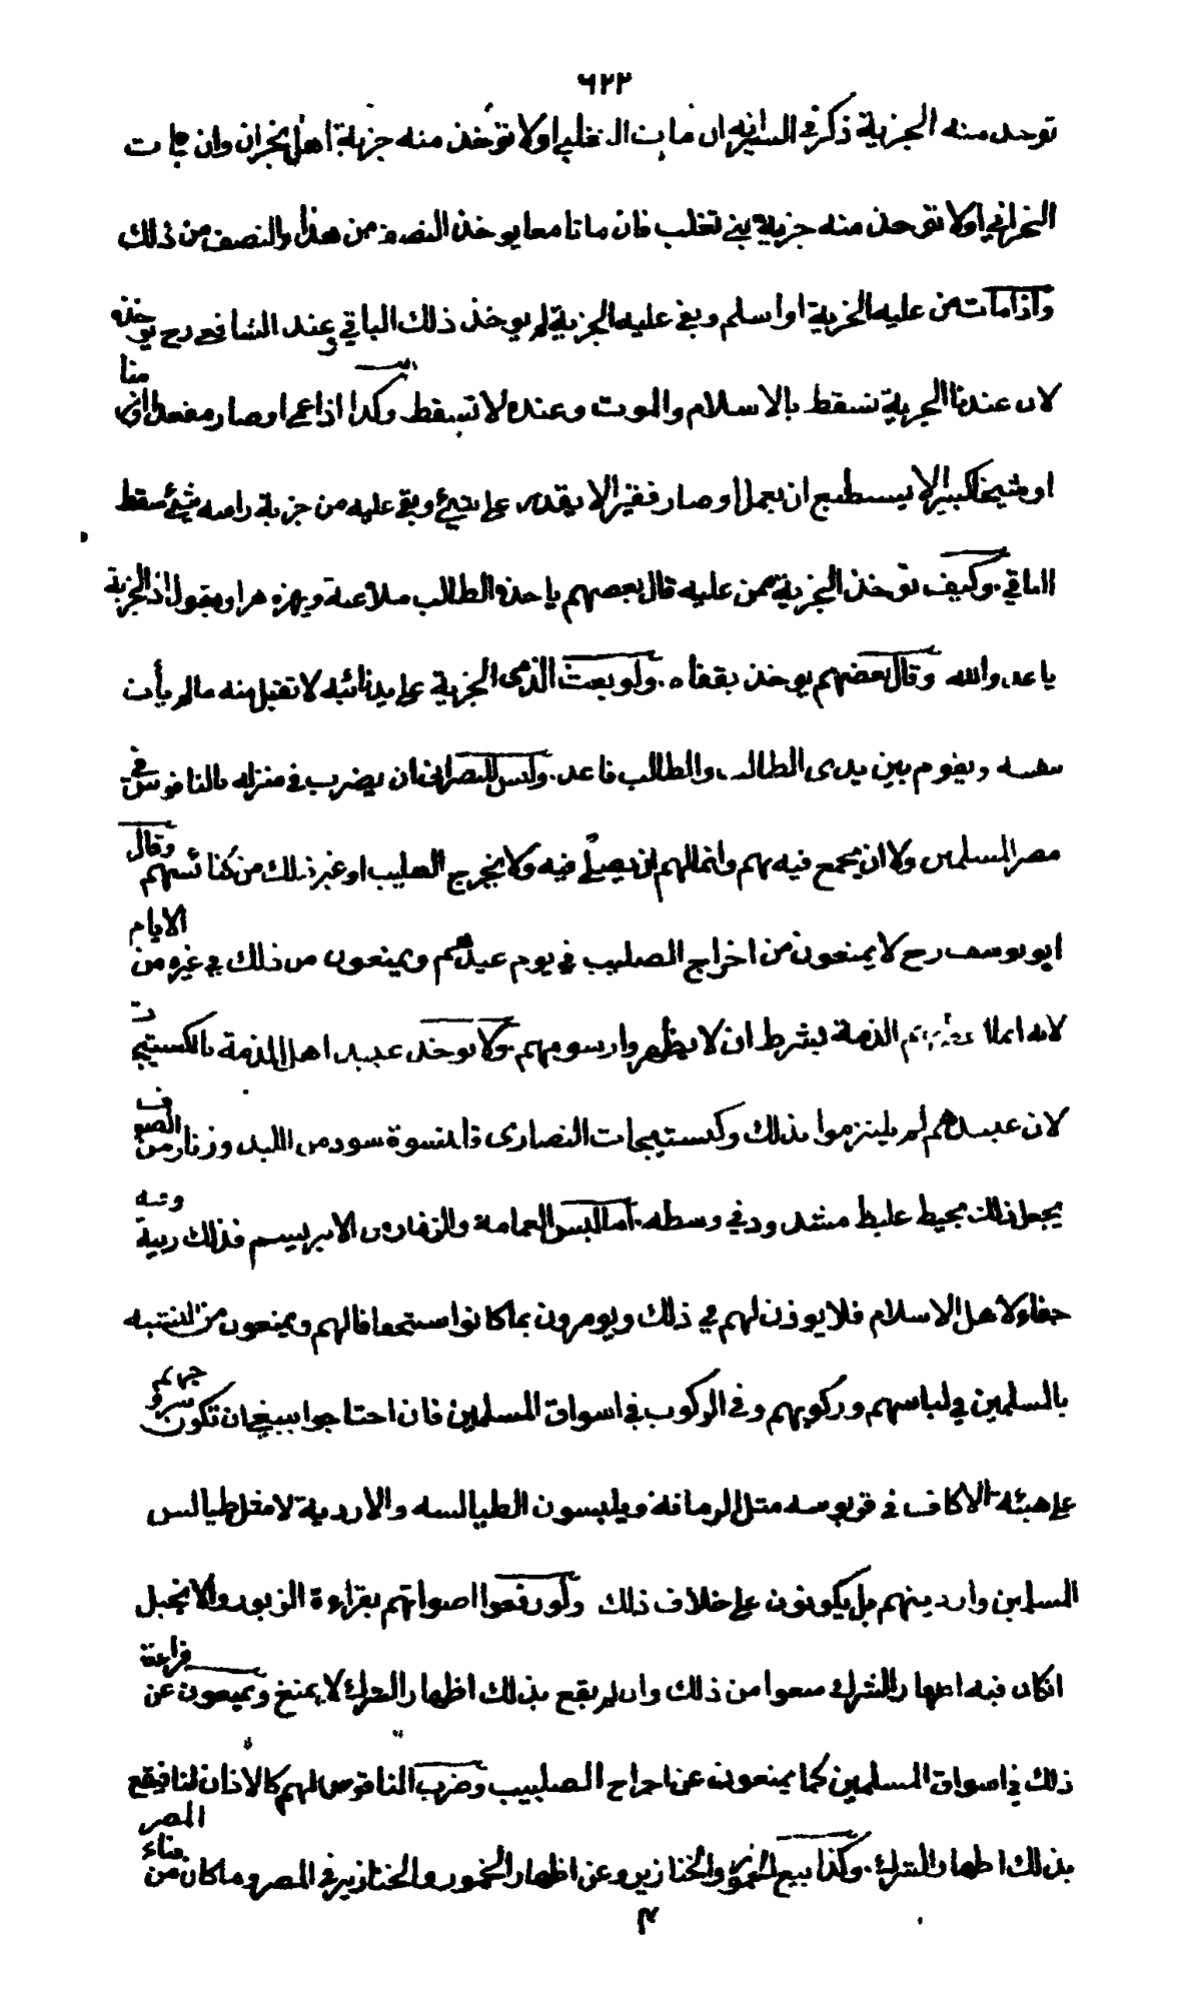 ٦٢٢
توخذ منه الجزية ذكر في السير انه ان مات التغلبي اولا توخذ منه جزية اهل نجران وان مات
النجراني اولا توخذ منه جزية بني تغلب فان ماتا معا يوخذ النصف من هذا والنصف من ذلك
واذا مات من عليه الجزية او اسلم وبقي عليه الجزية لم يوخذ ذلك الباقي وعند الشافعي رح يوخذ
لان عندنا الجزية تسقط بالاسلام والموت وعنده لا تسقط وكذا اذا عمي او صار مقعدا او زمنا
او شيخا كبيرا لا يستطيع ان يعمل او صار فقيرا لا يقدر على شيء وبقي عليه من جزية راسه شيء سقط
الباقي وكيف توخذ الجزية ممن عليه قال بعضهم ياخذه الطالب ويهزه هزا ويقول اد الجزية
يا عدو الله وقال بعضهم يوخذ بقفاه ولو بعث الذمي الجزية على يد نائبه لا تقبل منه ما لم يأت
بنفسه ويقوم بين يدي الطالب والطالب قاعد وليس للنصراني ان يضرب في منزله بالناقوس في
مصر المسلمين ولا ان يجمع فيه بهم وانما لهم ان يصلي فيه ولا يخرج الصليب او غير ذلك من كنائسهم وقال
ابو يوسف رح لا يمنعون من اخراج الصليب في يوم عيدهم ويمنعون من ذلك في غيره من الايام
لانه انما الذمة بشرط ان لا يظهروا رسومهم ولا يوخذ عبيد اهل الذمة بالكستيجات
لان عبيدهم لم يلتزموا بذلك وكستيجات النصارى قلنسوة سود من اللبد وزنار من الصوف
يجعل ذلك بخيط غليظ مشدود في وسطه اما لبس العمامة والزنار من الابريسم فذلك زينة وفيه
جفاء لاهل الاسلام فلا يوذن لهم في ذلك ويومرون بما كانوا استخفافا لهم ويمنعون من التشبه
بالمسلمين في لباسهم وركوبهم وفي الركوب في اسواق المسلمين فان احتاجوا ينبغي ان تكون سروجهم
على هيئة الاكاف في قربوسه مثل الرمانة ويلبسون الطيالسه والاردية لا مثل طيالس
المسلمين وارديتهم بل يكونون على خلاف ذلك ولو رفعوا اصواتهم بقراءة الزبور والانجيل
ان كان فيه اظهار الشرك منعوا من ذلك وان لم يقع بذلك اظهار الشرك لا يمنع ويمنعون عن قراءة
ذلك في اسواق المسلمين كما يمنعون عن اخراج الصليب وضرب الناقوس لهم كالاذان لنا فيقع
بذلك اظهار الشرك وكذا بيع الخمور والخنازير وعن اظهار الخمور والخنازير في المصر وما كان من فناء المصر